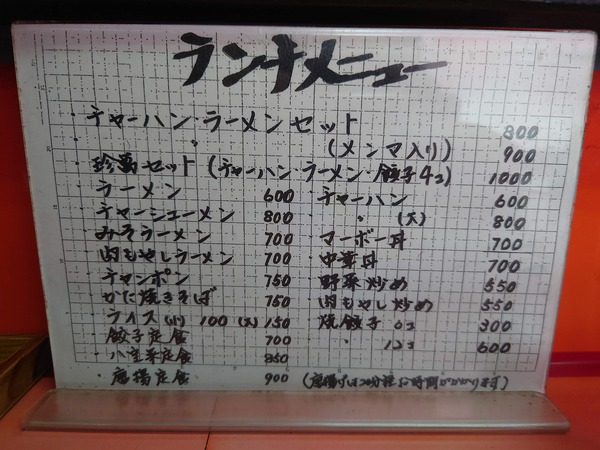 ランチメニュー
・チャーハン・ラーメンセット 800
〃 (メンマ入り) 900
・珍萬セット(チャーハン・ラーメン・餃子4コ) 1000
・ラーメン 600
・チャーシューメン 800
・みそラーメン 700
・肉もやしラーメン 700
・チャンポン 750
・かに焼きそば 750
・ライス(小) 100 (大) 150
・餃子定食 700
・八宝菜定食 850
・唐揚定食 900 (唐揚げは20分程お時間がかかります)
・チャーハン 600
〃 (大) 800
・マーボー丼 700
・中華丼 700
・野菜炒め 550
・肉もやし炒め 550
・焼餃子 6コ 300
〃 12コ 600